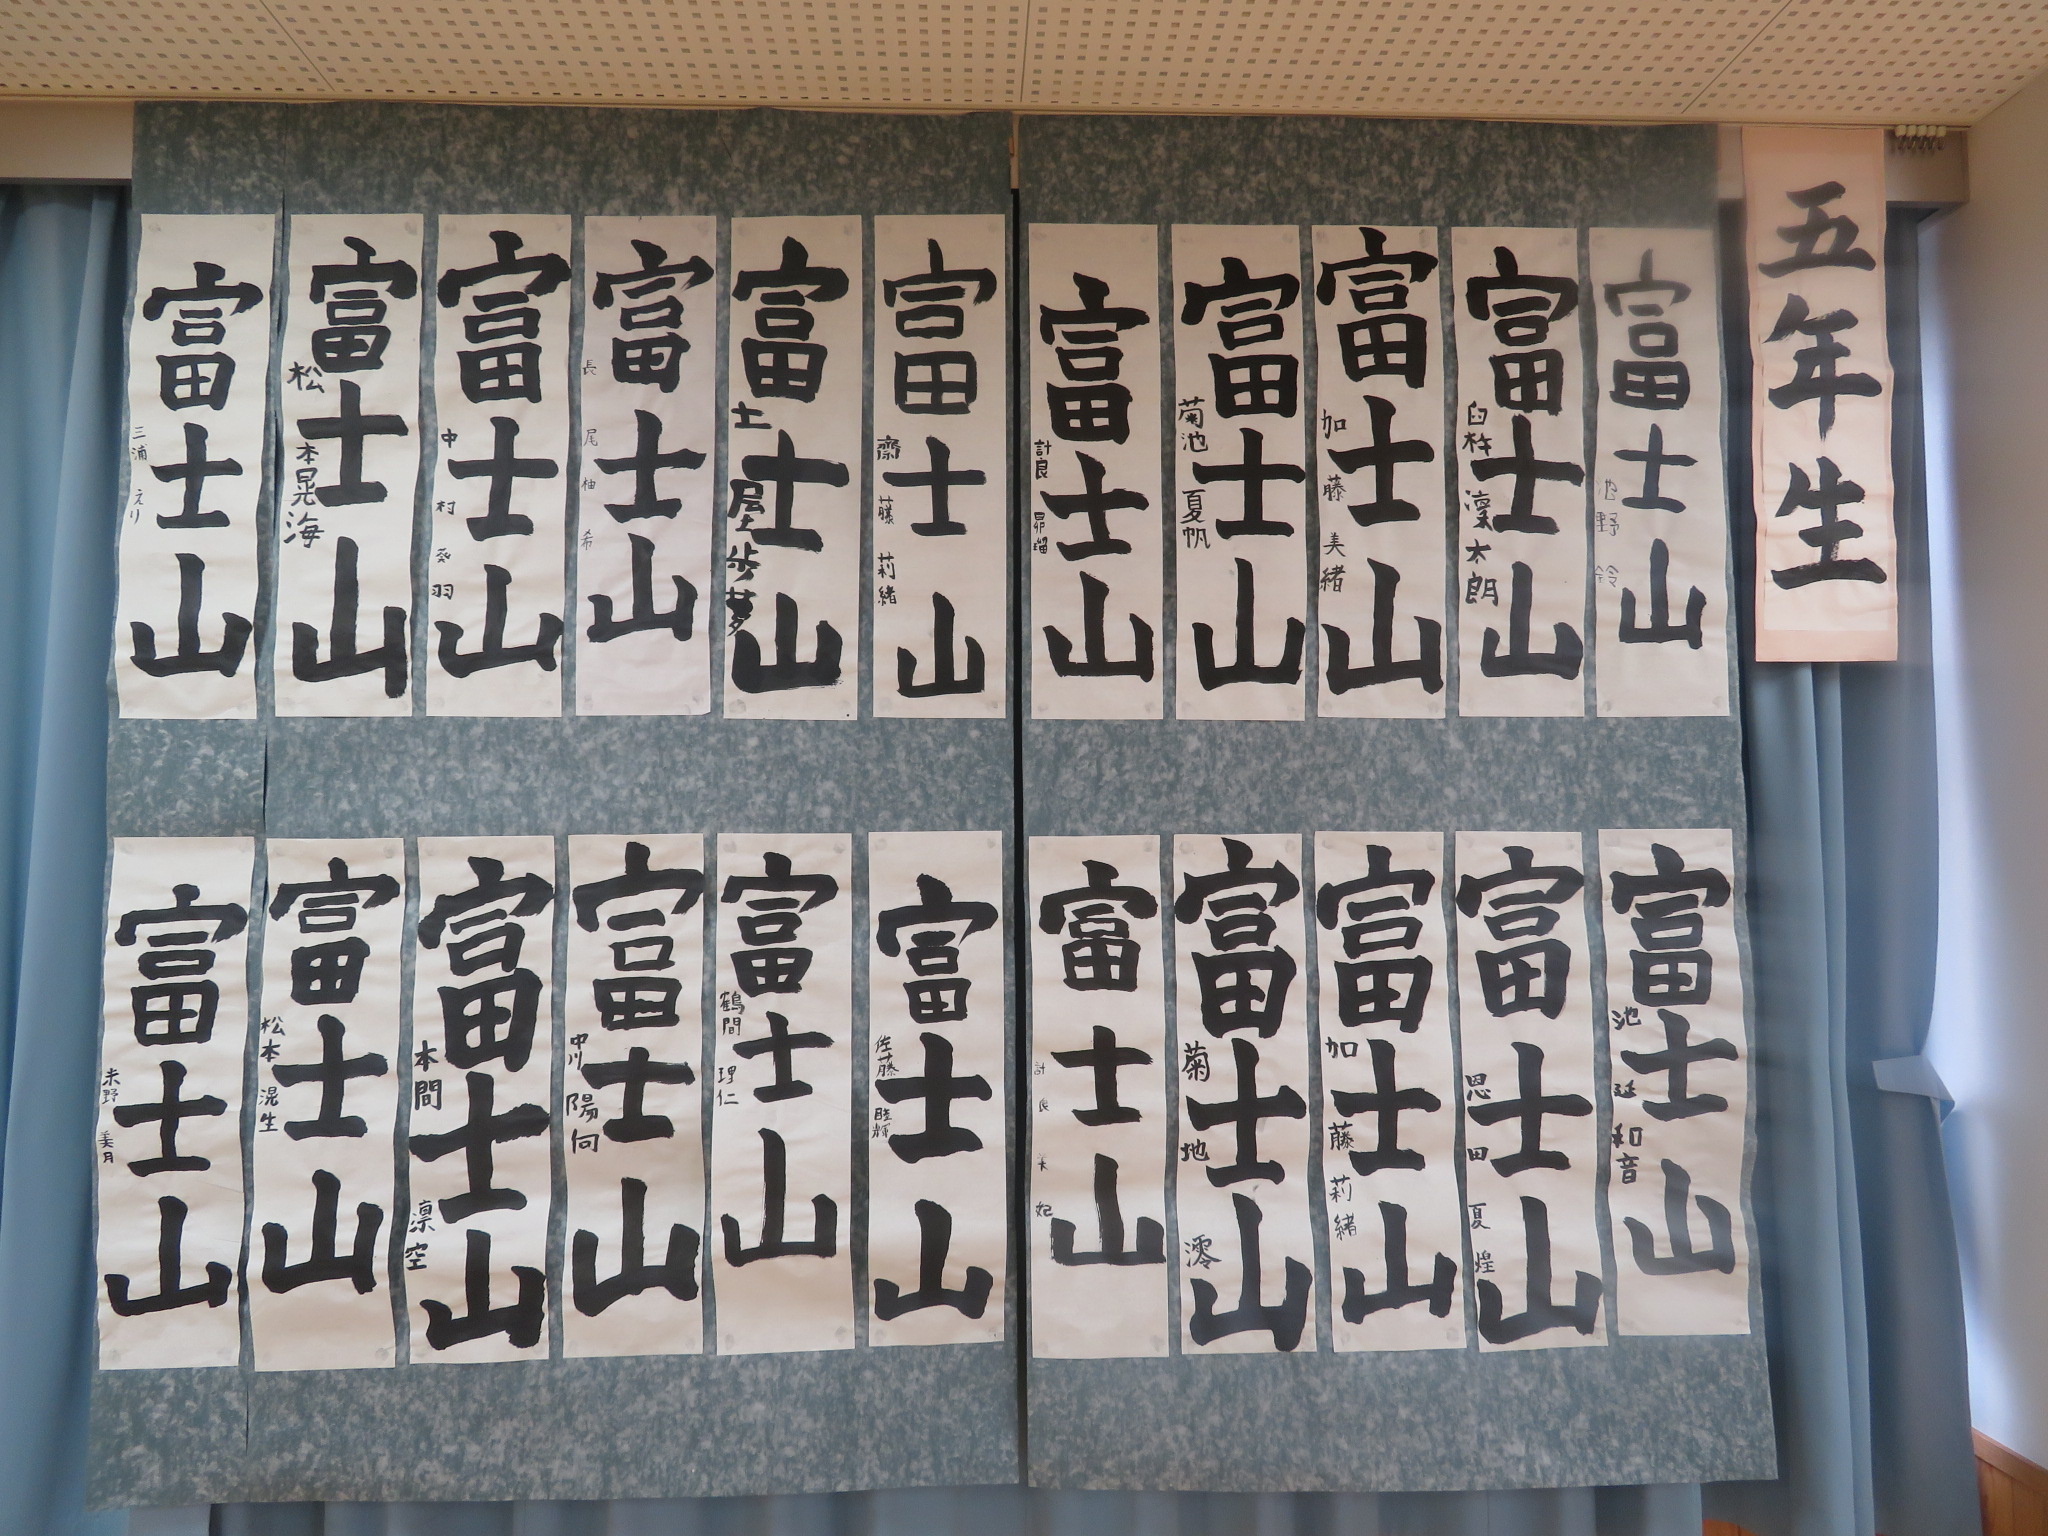 五年生
富士山
池野 鈴
富士山
臼杵 凜太朗
富士山
加藤 美緒
富士山
菊池 夏帆
富士山
計良 昴瑠
富士山
齋藤 莉緒
富士山
土屋 歩夢
富士山
長尾 柚希
富士山
中村 葵羽
富士山
松本 晃海
富士山
三浦 えり
富士山
池 和音
富士山
恩田 夏煌
富士山
加藤 莉緒
富士山
菊地 澪
富士山
計良 美妃
富士山
佐藤 睦輝
富士山
鶴間 理仁
富士山
中川 陽向
富士山
本間 凛空
富士山
松本 滉生
富士山
米野 美月